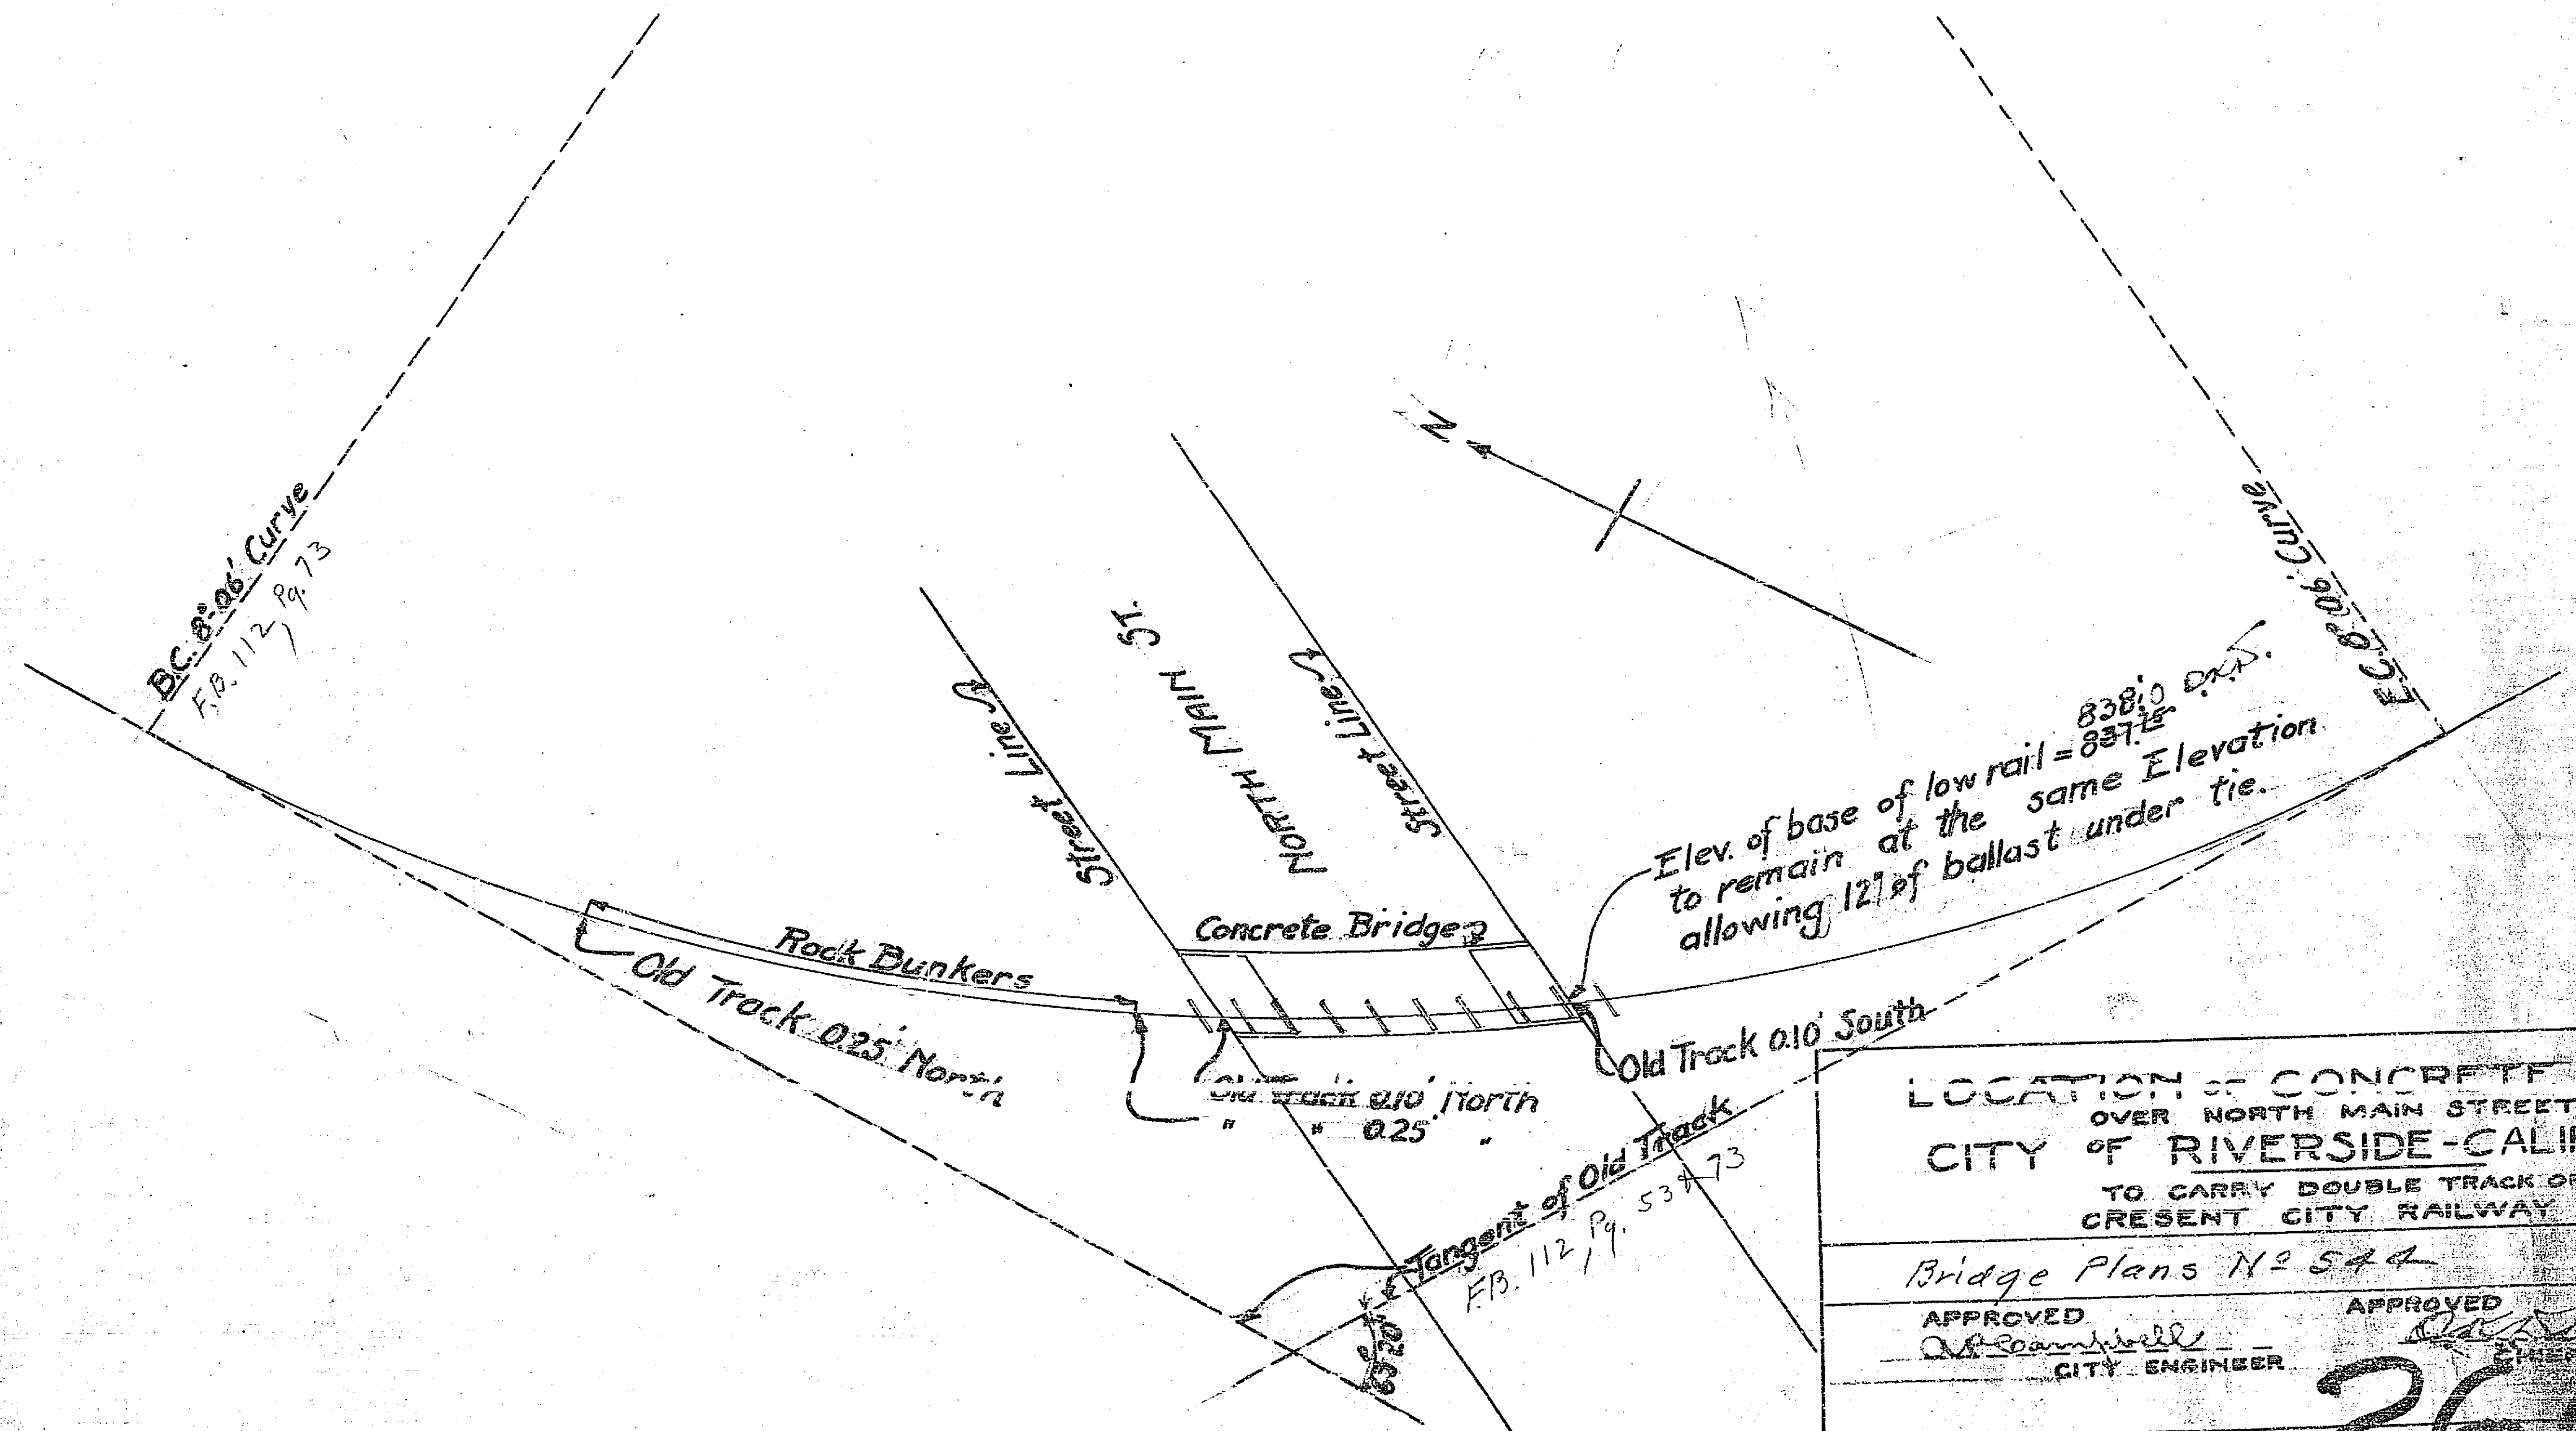 B.C. 8°-06' Curve
F.B. 112, Pg. 73
Street Line
NORTH MAIN ST.
Street Line
N
E.C. 8°06' Curve
838.0
Elev. of base of low rail = 837.75
to remain at the same Elevation
allowing 12" of ballast under tie.
Concrete Bridge
Rock Bunkers
Old Track 0.25' North
Old Track 0.10' North
" " 0.25' "
Old Track 0.10' South
Tangent of Old Track
F.B. 112, Pg. 53 & 73
63°20'
LOCATION OF CONCRETE
OVER NORTH MAIN STREET
CITY OF RIVERSIDE-CALIF
TO CARRY DOUBLE TRACK OF
CRESENT CITY RAILWAY
Bridge Plans Nº 544
APPROVED
APPROVED
Campbell
CITY ENGINEER